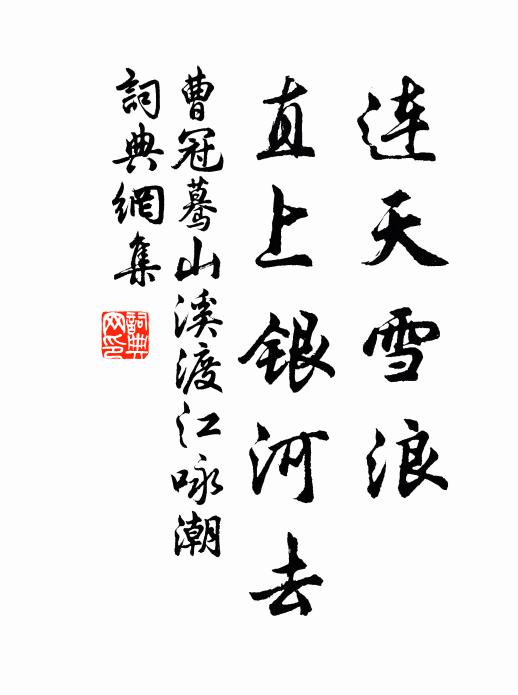 连天雪浪
直上银河去
曹冠蓦山溪渡江咏潮
詞典網集
詞典网印